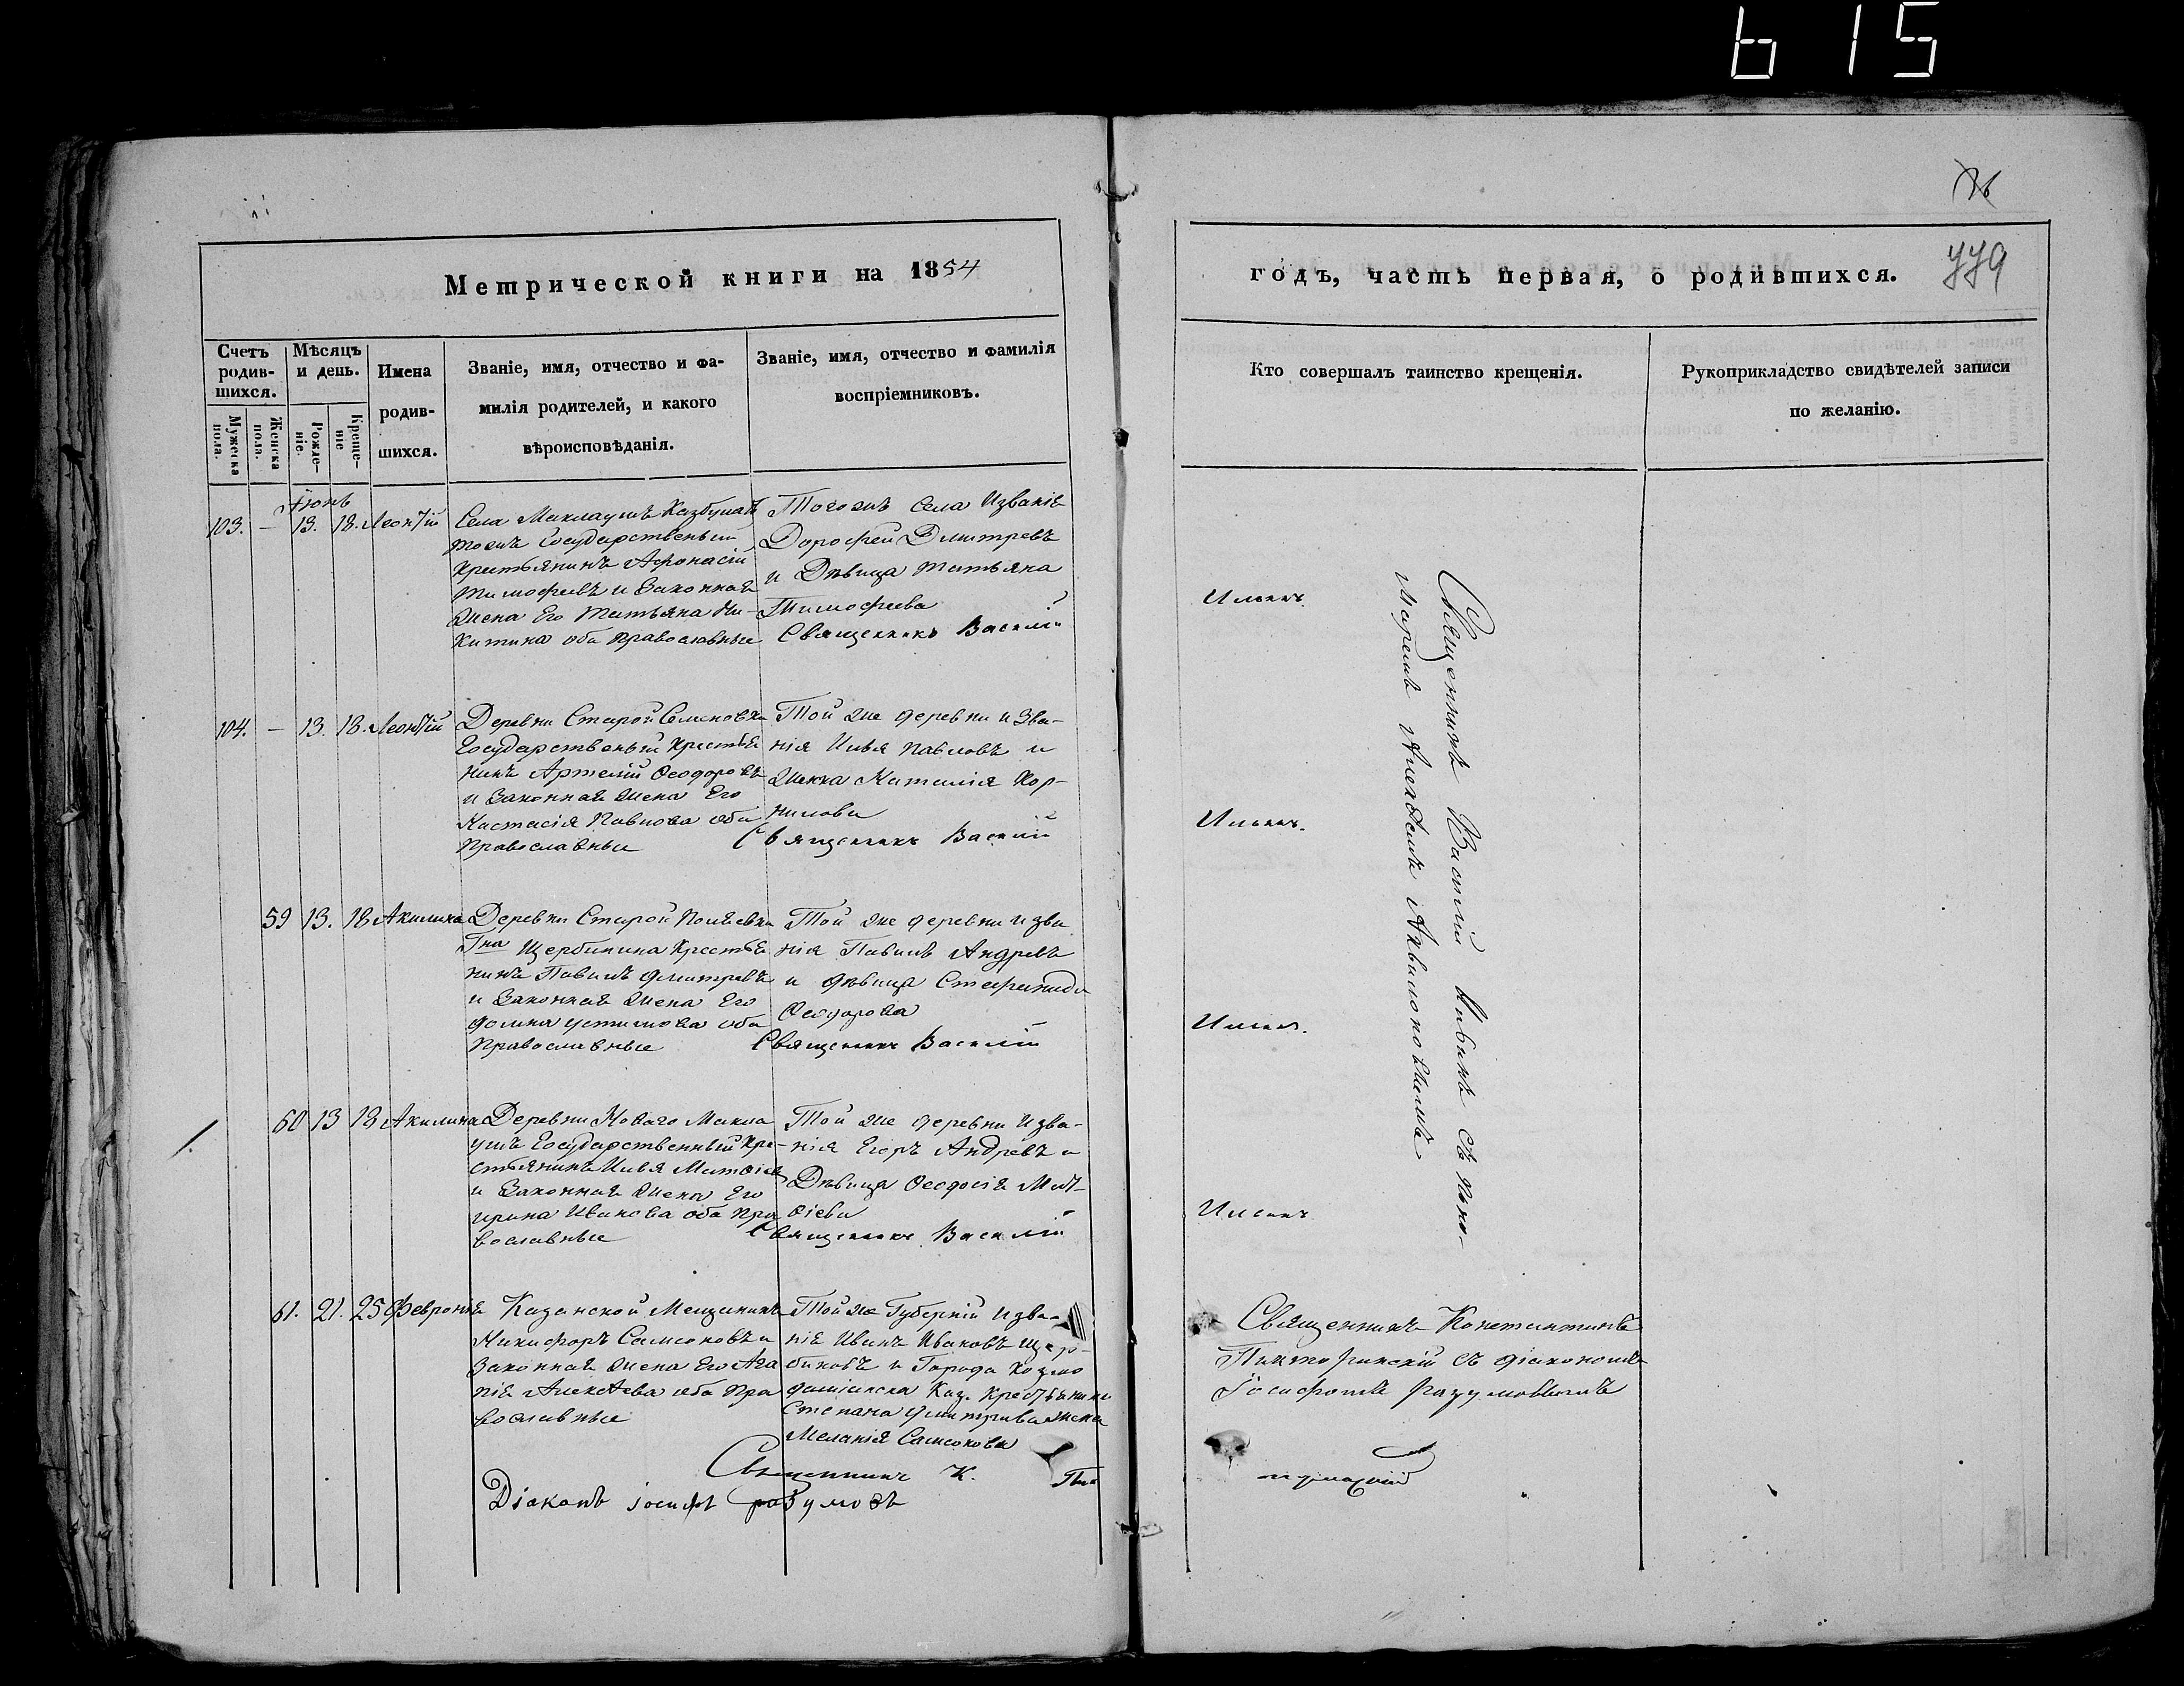 615
76
779
Метрической книги на 1854
годъ, часть первая, о родившихся.
Счетъ родив-шихся.
Мужеска пола.
Женска пола.
Мѣсяцъ и день.
Рожде-ніе.
Креще-ніе
Имена родив-шихся.
Званіе, имя, отчество и фа-
милія родителей, и какого
вѣроисповѣданія.
Званіе, имя, отчество и фамилія
воспріемниковъ.
Кто совершалъ таинство крещенія.
Рукоприкладство свидѣтелей записи
по желанію.
Іюнь
103. — 13. 18. Леонтій
Села Маклаушъ Казбулатъ
тожъ Государственный
Крестьянинъ Афонасій
Тимофеевъ и Законная
Жена Его Татьяна Ни-
китина оба Православные
Тогожъ Села Изваніе
Дорофей Дмитревъ
и Дѣвица Татьяна
Тимофеева
Священникъ Василій
104. — 13. 18. Леонтій
Деревни Старой Семеновки
Государственный Крестья
нинъ Артемій Ѳеодоровъ
и Законная Жена Его
Настасія Павлова оба
Православные
Той же деревни и Зва-
нія Илья Павловъ и
Женка Наталія Кор-
нилова
Священникъ Василій
59 13. 18 Акилина
Деревни Старой
Гна Щербинина Крестья
нинъ Павилъ Дмитревъ
и Законная Жена Его
Домна Устимова оба
Православные
Той же деревни и зва
нія Павилъ Андревъ
и дѣвица Стефанида
Ѳеодорова
Священникъ Василій
60 13 18 Акилина
Деревни Новаго Макла
ушъ Государственный Кре-
стьянинъ Илья Матѳіевъ
и Законная Жена Его
Ирина Иванова оба Пра
вославные
Той же деревни Изва-
нія Егоръ Андревъ и
Дѣвица Ѳеодосія Мат-
ѳіева
Священникъ Василій
61. 21. 25 Февронія
Казанской Мещининъ
Никифоръ Самсоновъ и
Законная Жена Его Ага
пія Алексѣева оба Пра
вославные
Той же Губерніи и зва-
ніе Иванъ Ивановъ Щер-
биновъ и Города Козмо
даміанска Каз. Крестьянина
Степана Дмитрива жена
Меланія Самсонова
Священникъ К.
Діаконъ Іосифъ Разумовъ
Священникъ Василій Ивинъ съ поно-
маремъ Алексѣемъ Аквилоновымъ
Священникъ Константинъ
съ діакономъ
Іосифомъ Разумовымъ